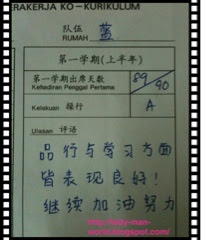 RAKERJA KO-KURIKULUM
队伍
RUMAH 蓝
第一学期(上半年)
第一学期出席天数 89/90
Kehadiran Penggal Pertama
Kelakuan 操行 A
Ulasan 评语
品行与学习方面
皆表现良好!
继续加油努力